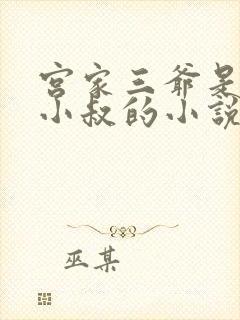 宫家三爷是
小叔的小說
巫某